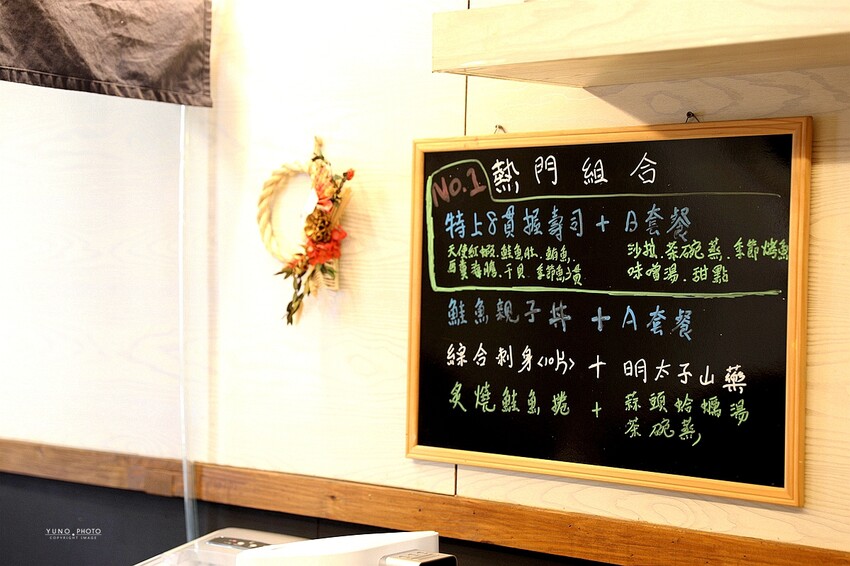 熱門組合
No.1
特上8貫握壽司 + B套餐
天使紅蝦.鮭魚肚.鮪魚. 沙拉.茶碗蒸.季節烤魚
海膽.干貝.季節魚 味噌湯.甜點
鮭魚親子丼 + A套餐
綜合刺身<10片> + 明太子山藥
炙燒鮭魚捲 + 蒜頭蛤蠣湯
茶碗蒸
YUNO PHOTO
COPYRIGHT IMAGE